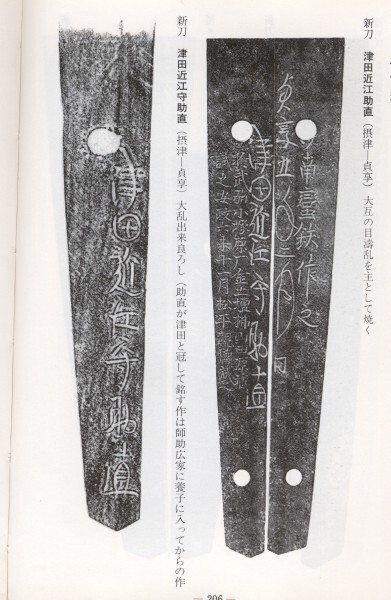 新刀　津田近江助直（摂津―貞享）大互の目濤乱を主として焼く
南蛮鉄作之
貞享五ノ
日
津田近江守助直
新刀　津田近江守助直（摂津―貞享）大乱出来良ろし（助直が津田と冠して銘す作は師助広家に養子に入ってからの作
津田近江守助直
— 206 —